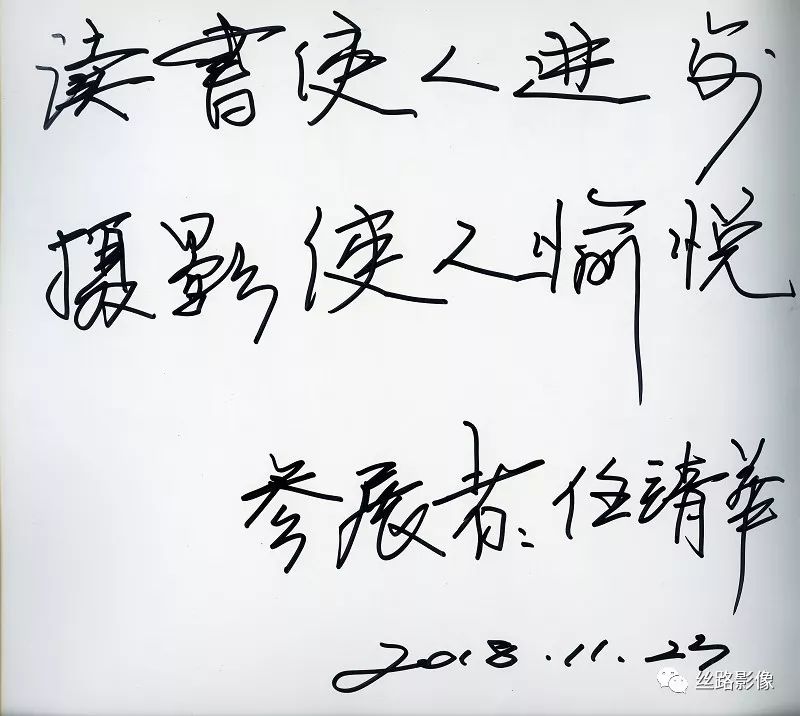 读书使人进步
摄影使人愉悦
参展者:任靖华
2018.11.23
丝路影像